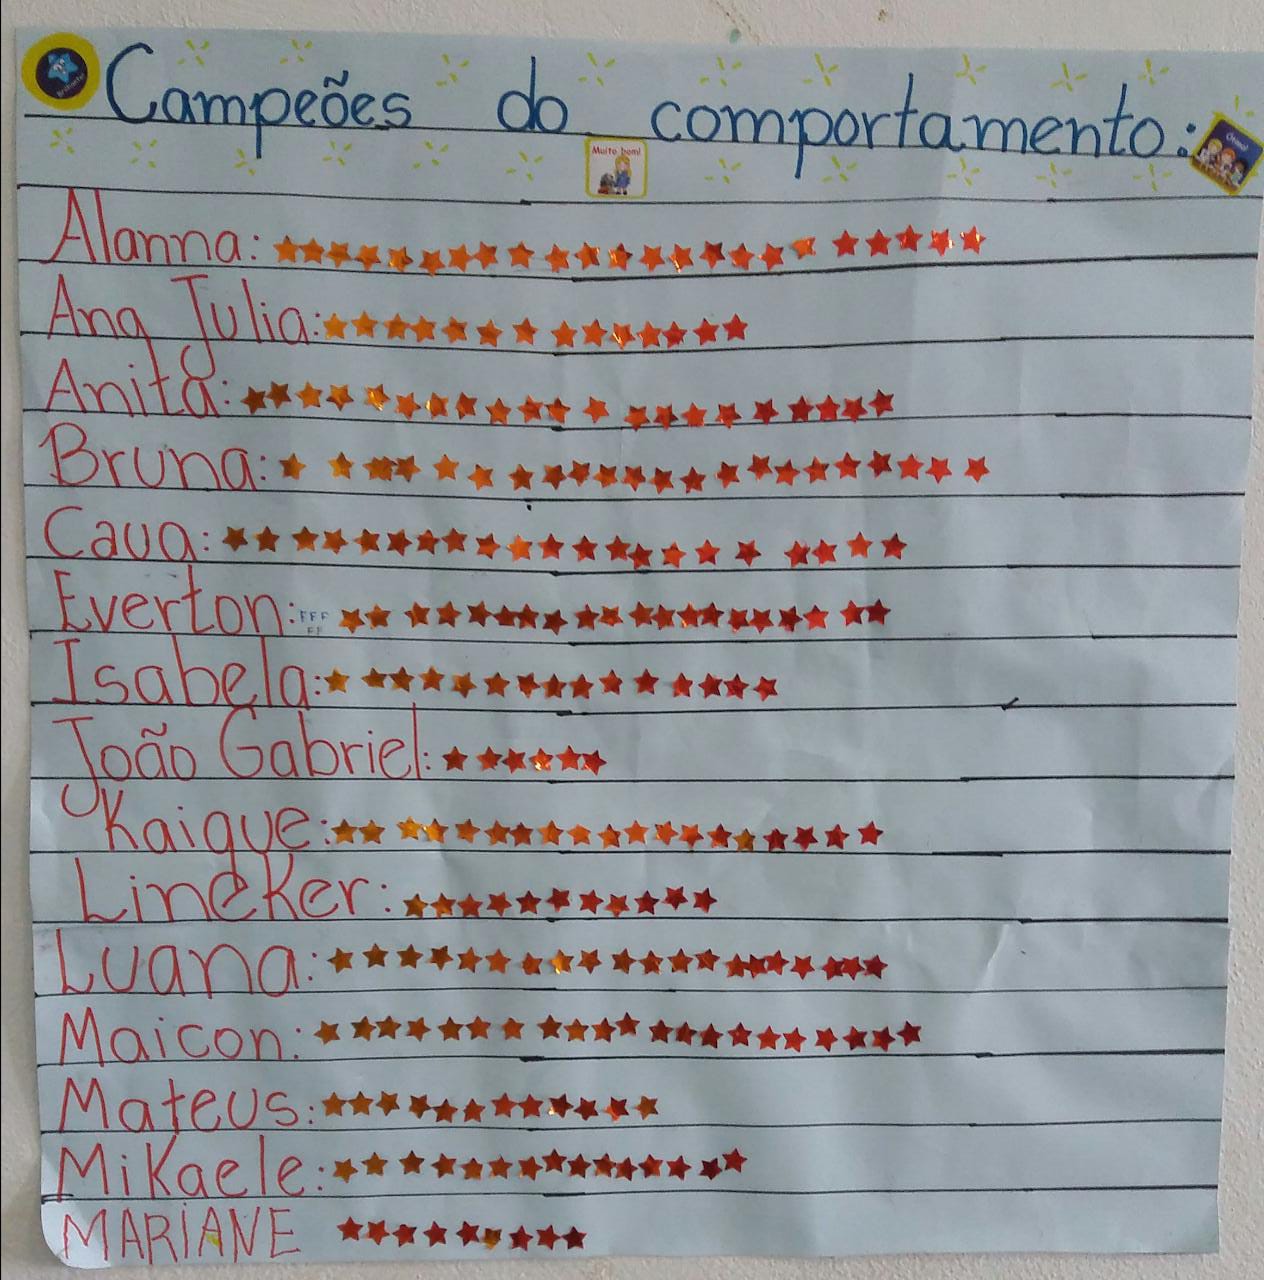 Campeões do comportamento:
Muito bom!
Alanna:
Ana Julia:
Anita:
Bruna:
Caua:
Everton: FFF
FF
Isabela:
João Gabriel:
Kaique:
Lineker:
Luana:
Maicon:
Mateus:
Mikaele:
MARIANE